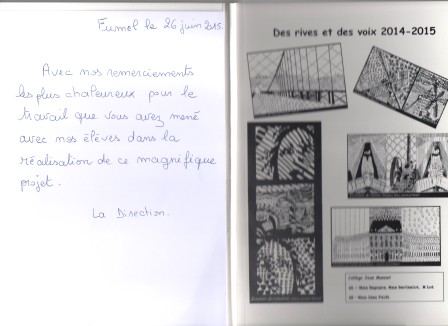 Fumel le 26 juin 2015.
Avec nos remerciements
les plus chaleureux pour le
travail que vous avez mené
avec nos élèves dans la
réalisation de ce magnifique
projet.
La Direction.
Des rives et des voix 2014-2015
Collège Jean Monnet